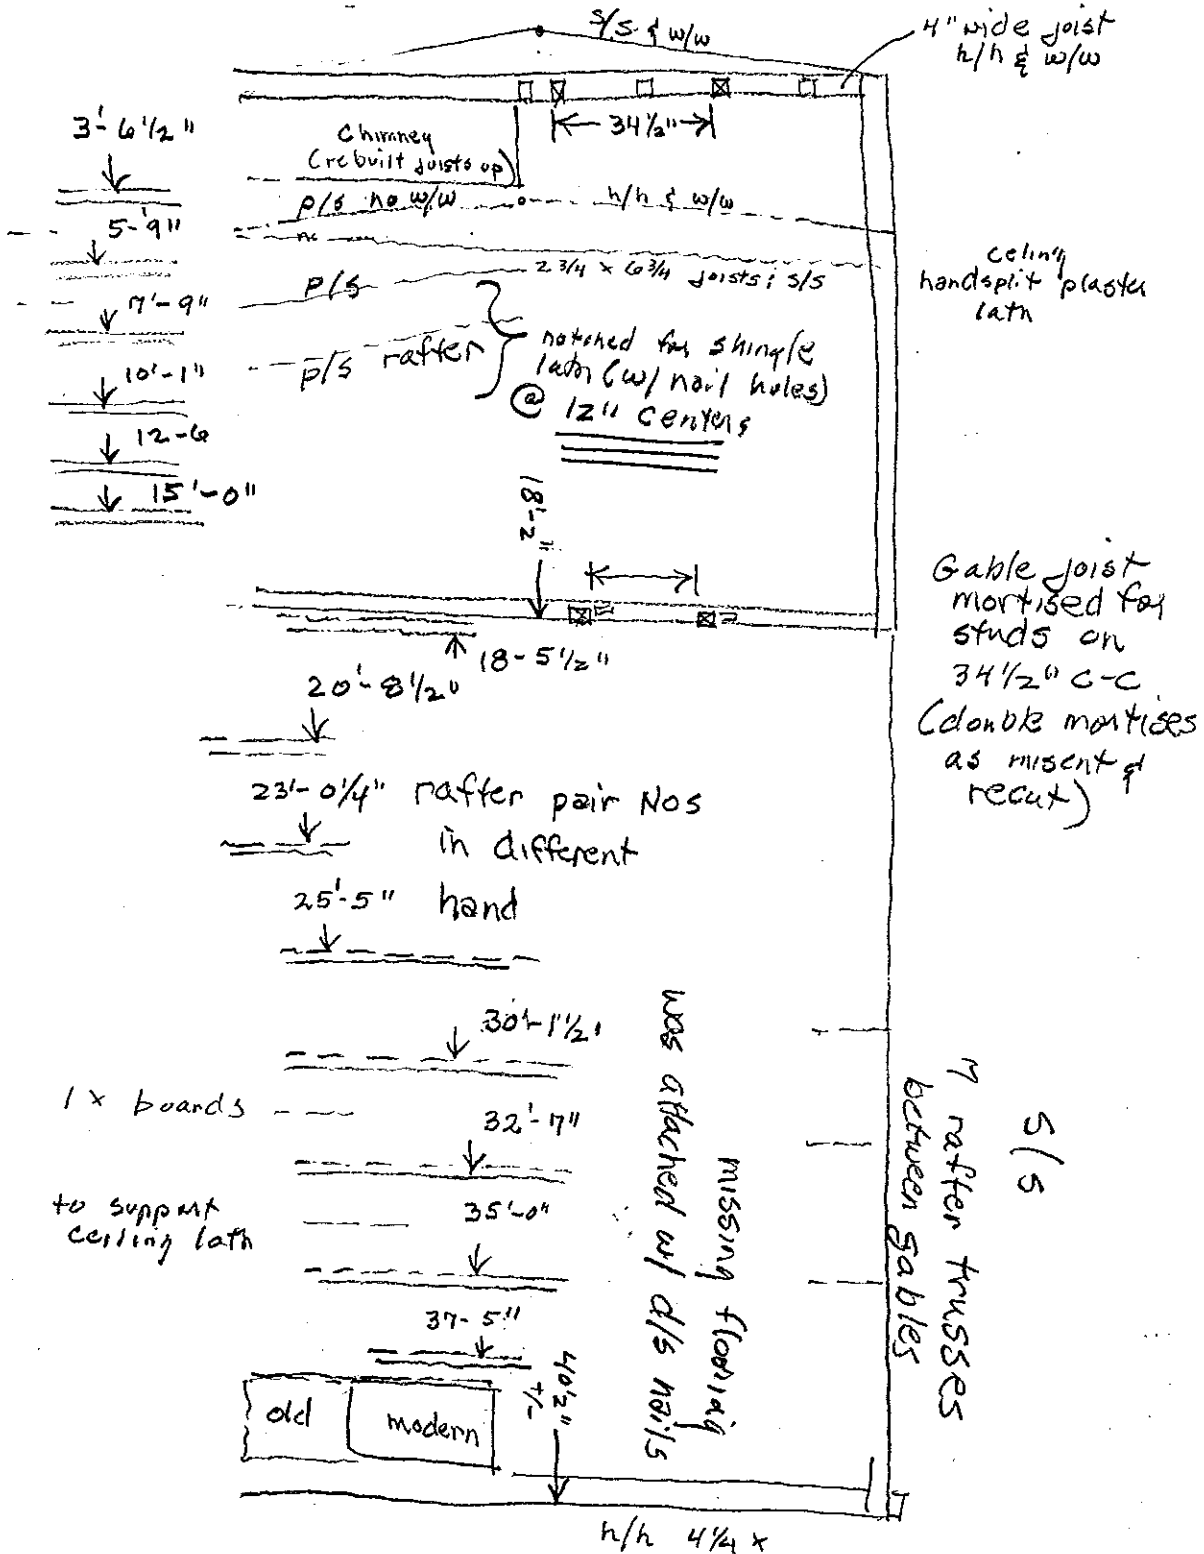 s/s & w/w
4" wide joist
h/h & w/w
3'-6 1/2"
Chimney
(rebuilt joists up)
34 1/2"
p/s no w/w
h/h & w/w
5'-9"
2 3/4 x 6 3/4 joists; s/s
celing
handsplit plaster
lath
7'-9"
p/s
p/s rafter
notched for shingle
lath (w/ nail holes)
@ 12" centers
10'-1"
12-6
15'-0"
18'-2"
18-5 1/2"
20'-8 1/2"
Gable joist
mortised for
studs on
34 1/2" c-c
(double mortises
as miscut &
recut)
23'-0 1/4"
rafter pair Nos
in different
hand
25'-5"
30'-1 1/2'
1 x boards
to support
ceiling lath
32'-7"
35'-0"
37-5"
missing flooring
was attached w/ d/s nails
7 rafter trusses
between gables
s/s
old
modern
40'2"
+/-
h/h 4 1/4 x